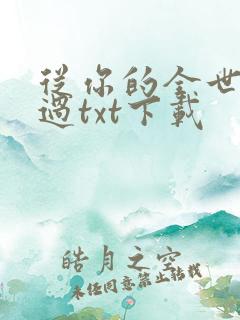 從你的全世
過txt下載
皓月之空
未经同意禁止转载